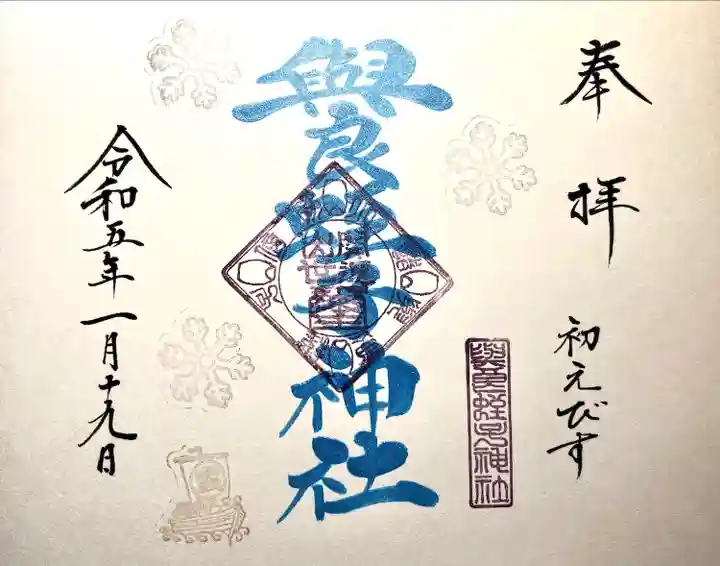 奉拝
初えびす
與良蛭子神社
與良蛭子神社
令和五年一月十九日